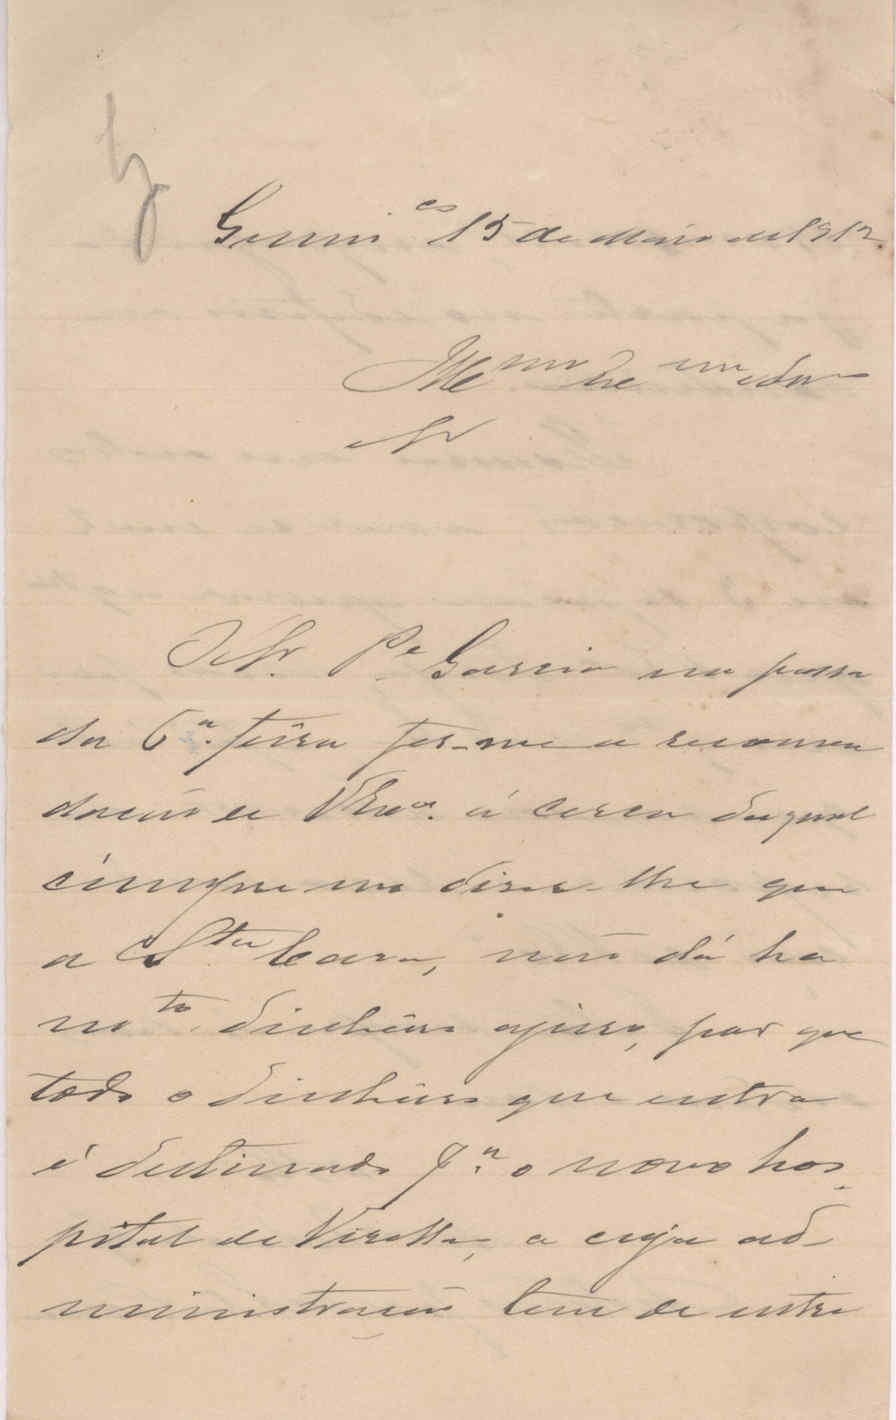 Guim.es 15 de Maio de 1912.
Illmo Exmo
Snr
O Snr. Pe Garcia na passa
da 6.a feira fez-me a recomen
dação de V Exa. á cerca da qual
cumpre-me dizer-lhe que
a Sta Casa, não dá ha
mto. dinheiro a juro, por que
todo o dinheiro que entra
é destinado p.a o novo hos
pital de Vizella, a cuja ad
ministração tem de entre